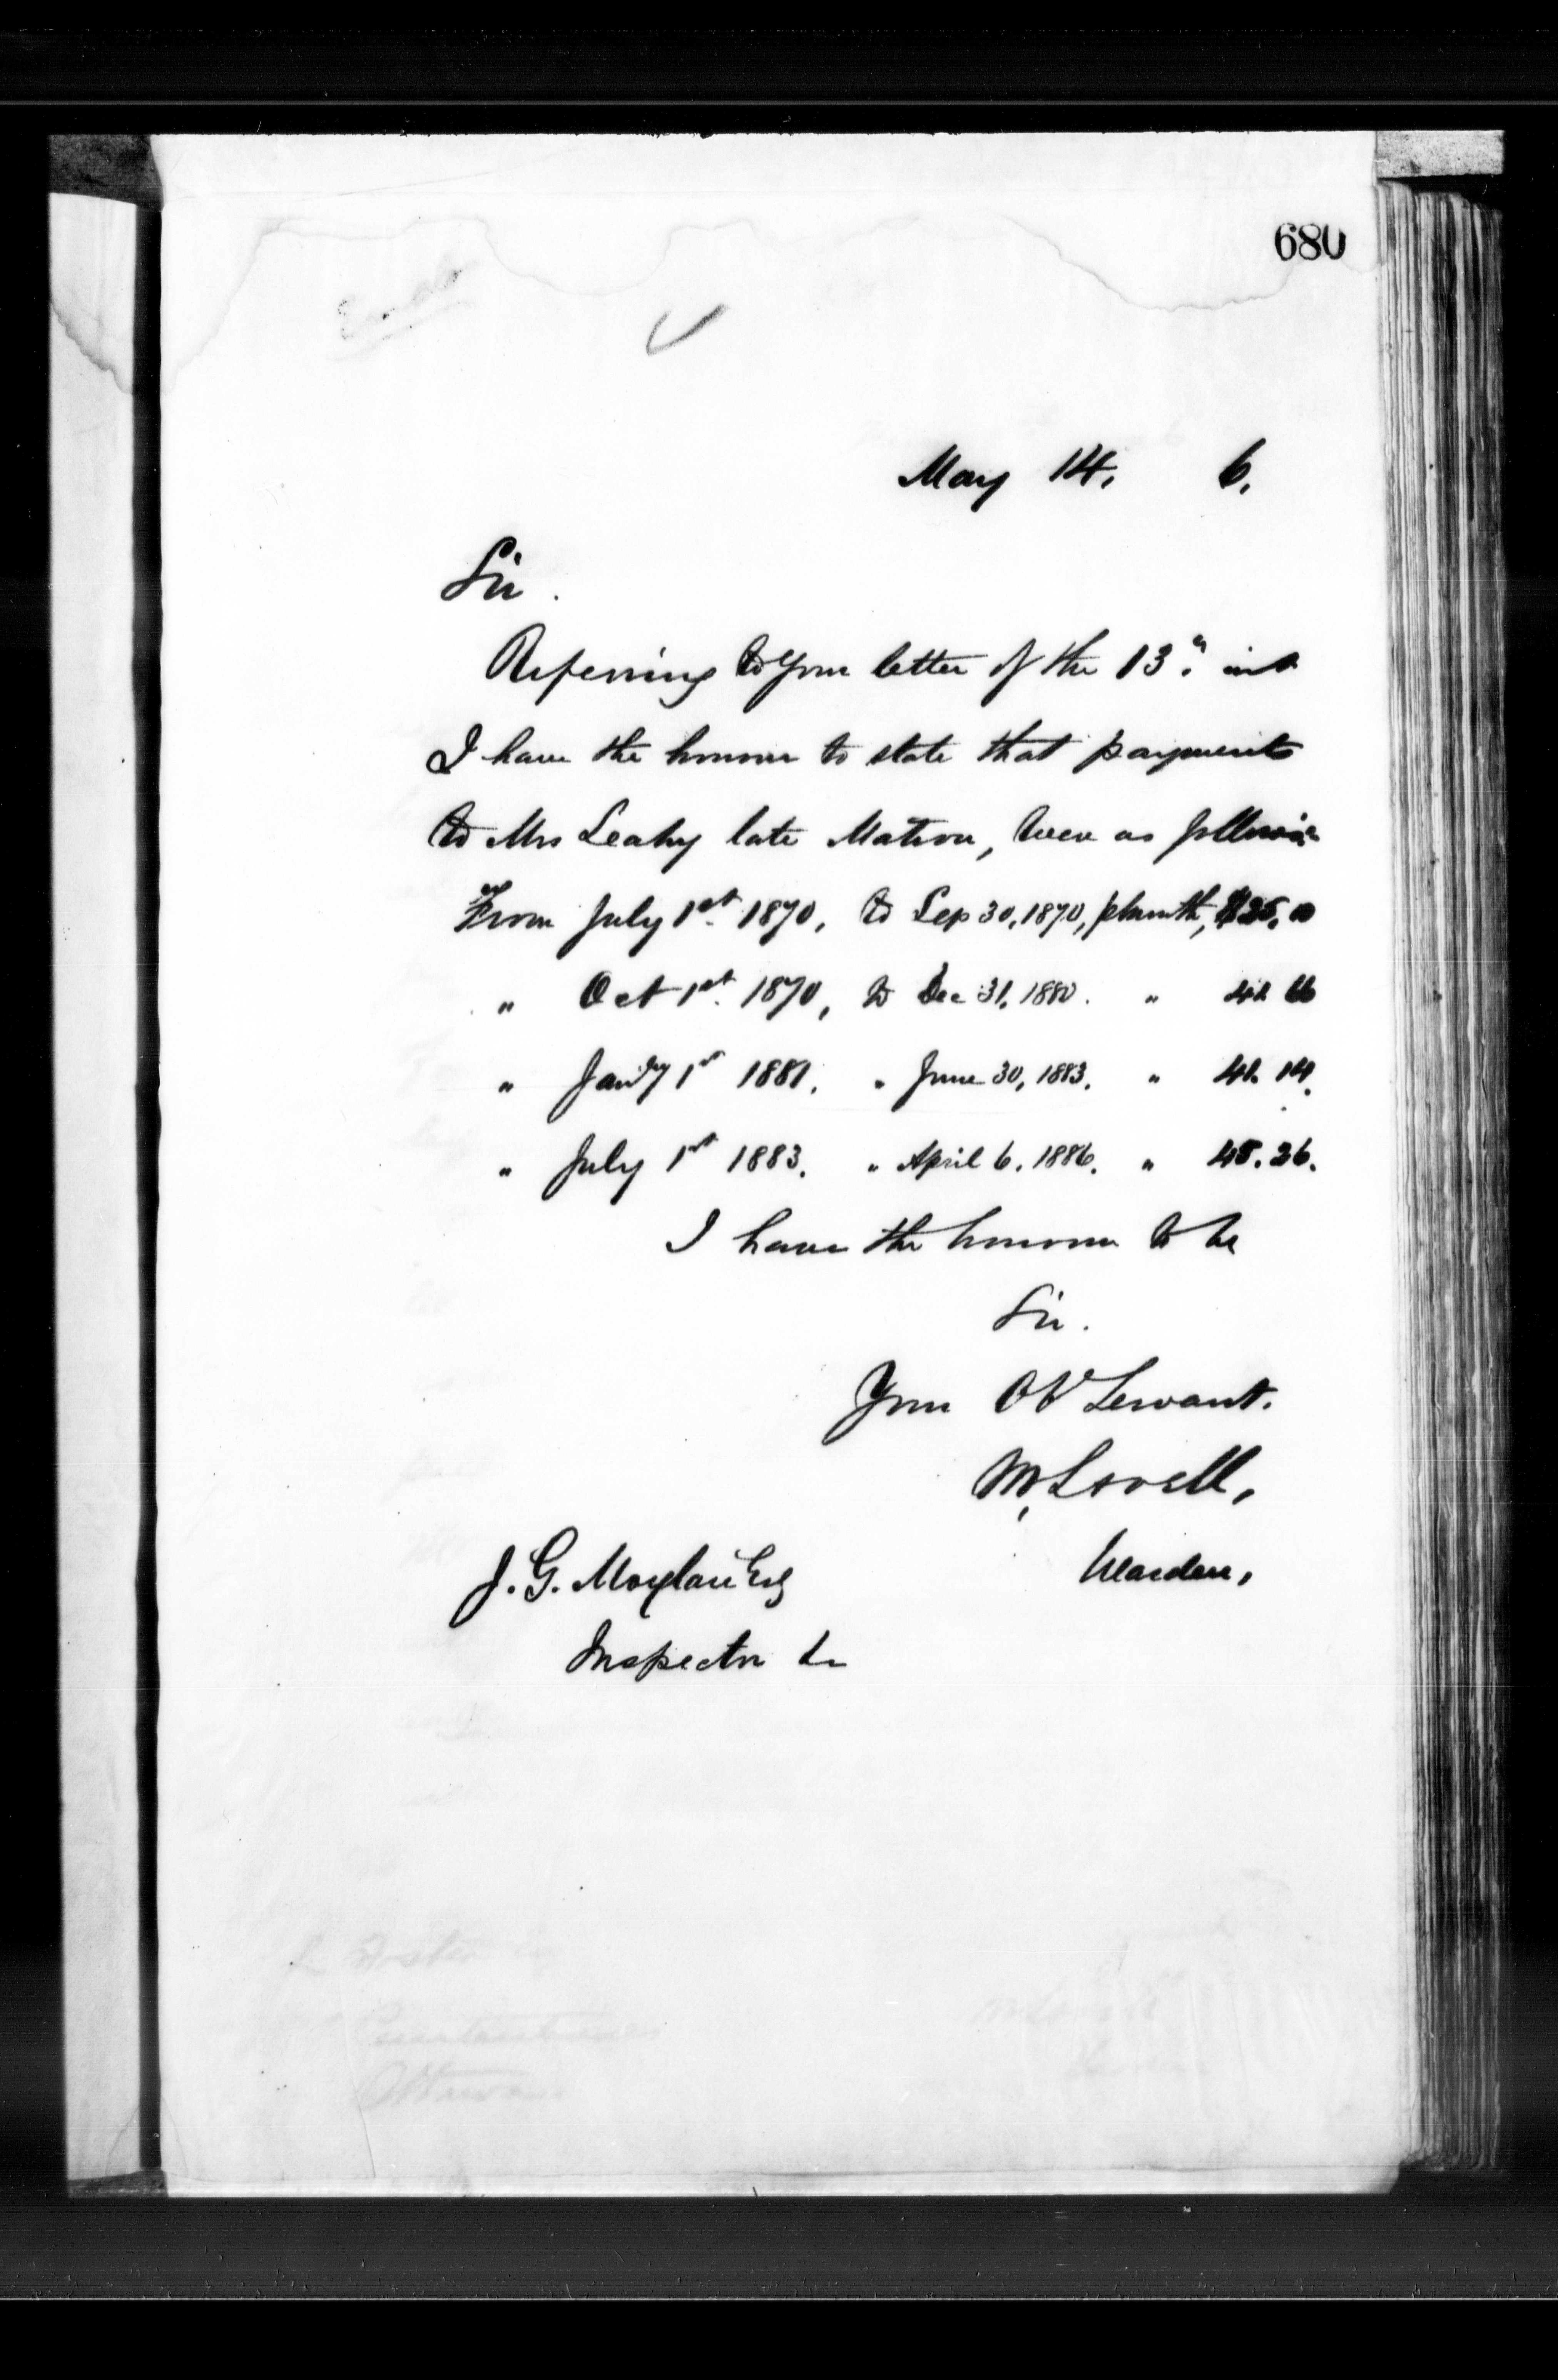 680
May 14, 6,
Sir.
Referring to your letter of the 13" inst
I have the honour to state that payments
to Mrs Leahy late Matron, were as follows:
From July 1st 1870, to Sep 30, 1870, p month, $25.00
" Oct 1st 1870, to Dec 31, 1880. " 41 66
" Jany 1st 1881. " June 30, 1883. " 41. 14.
" July 1st 1883. " April 6. 1886. " 45. 26.
I have the honour to be
Sir.
Your Ob Servant.
M, Lavell,
Warden,
J. G. Moylan Esq
Inspector &c